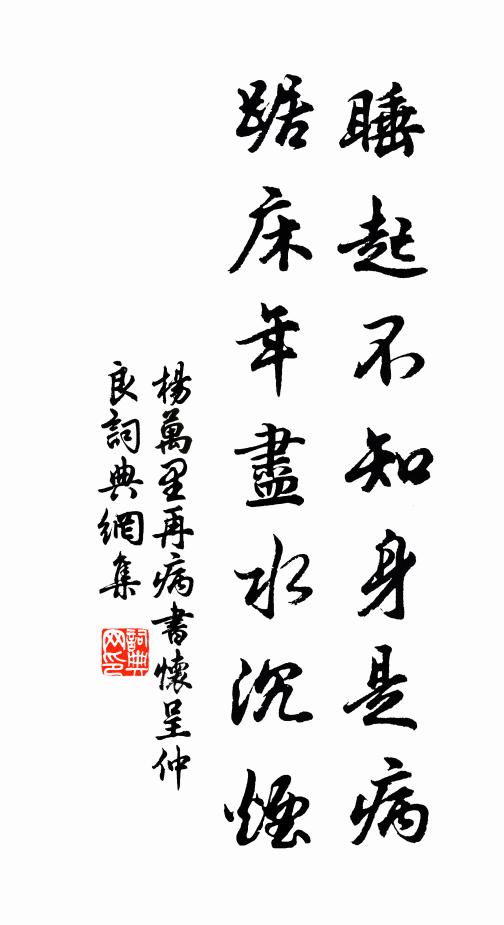 睡起不知身是病
踞床年盡水沉煙
楊萬里再病書懷呈仲
良詞典網集
詞典网印